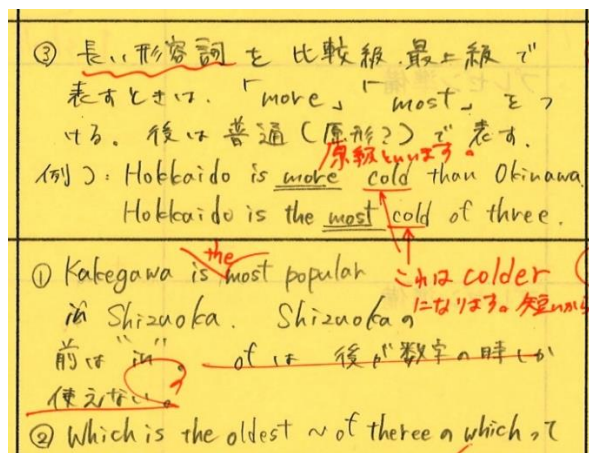 ③ 長い形容詞 を 比較級.最上級で
表すときは.「more」「most」をつ
ける。後は普通(原形?)で表す.
原級といいます。
例): Hokkaido is more cold than Okinawa.
Hokkaido is the most cold of three.
the
① Kakegawa is most popular
これは colder
in Shizuoka. Shizuokaの
になります。短いから
前は "in"。 ofは 後が数字の時しか
使えない。
② Which is the oldest ~ of thereeのwhichって